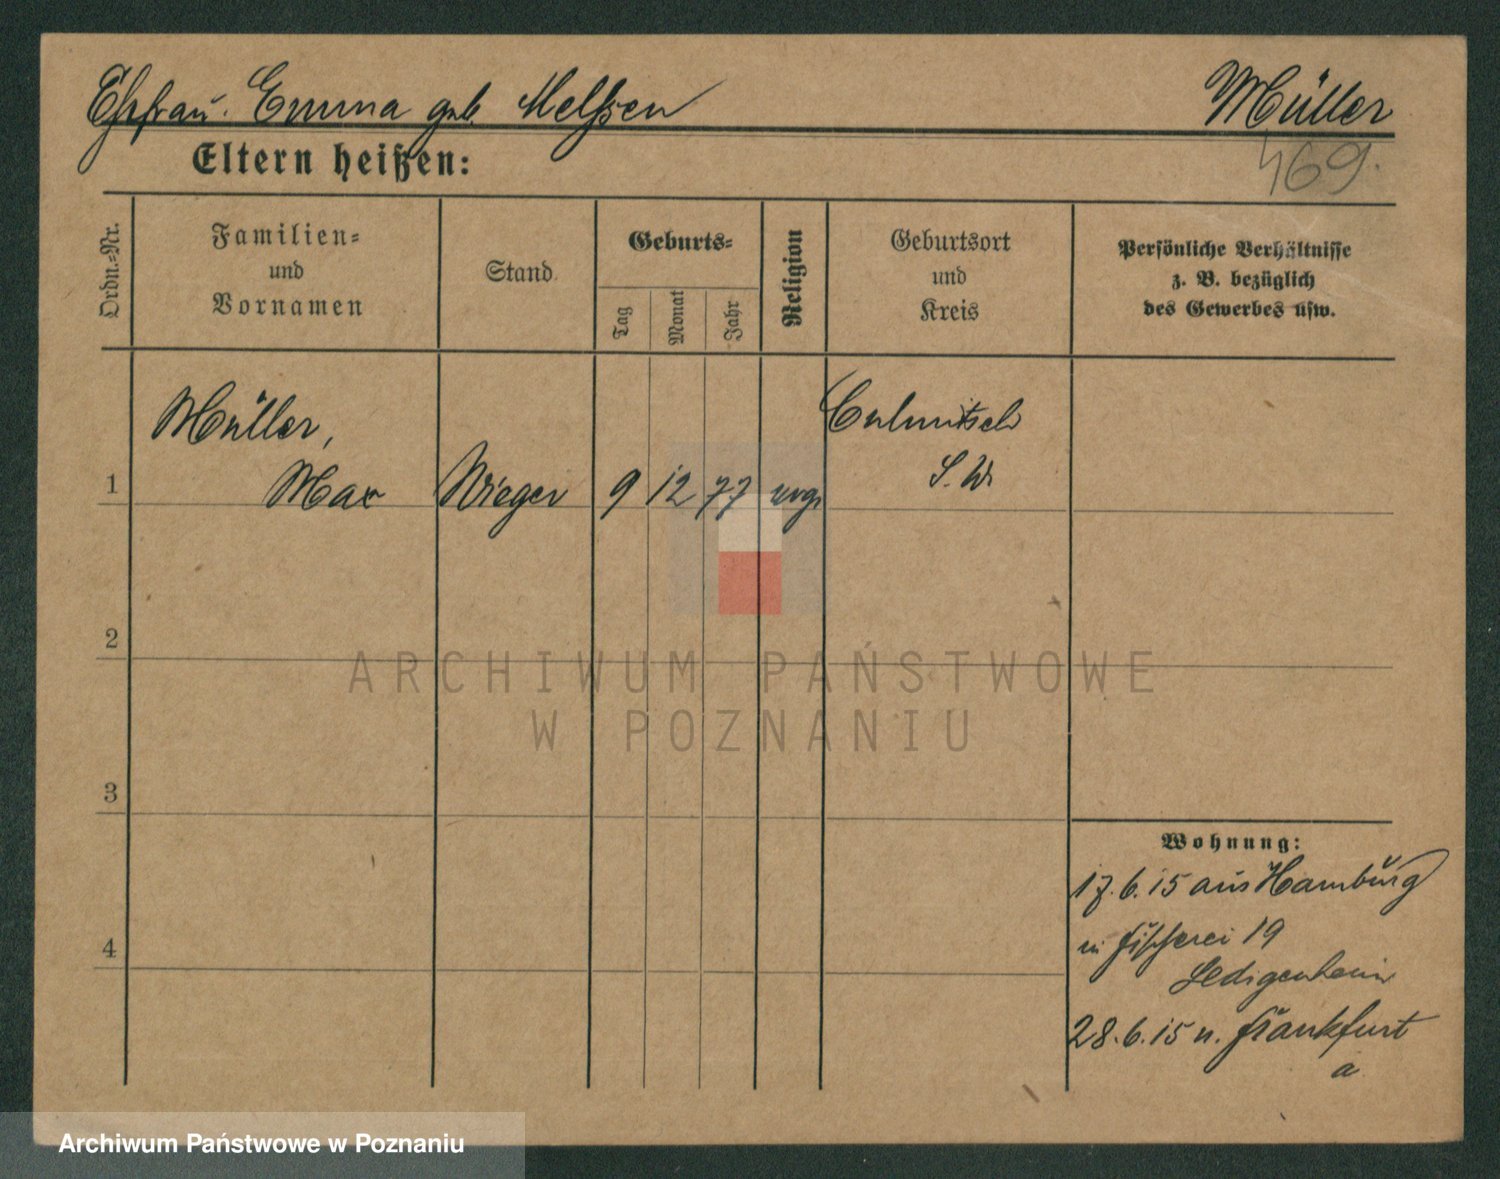 Ehefrau. Emma geb. Melhsen
Müller
Eltern heißen:
469.
Ordn.-Nr.
Familien-
und
Vornamen
Stand
Geburts-
Tag
Monat
Jahr
Religion
Geburtsort
und
Kreis
Persönliche Verhältnisse
z. B. bezüglich
des Gewerbes usw.
1
Müller,
Max
9 12 77
evgl
2
3
4
Wohnung:
17.6.15 aus Hamburg
n Fischerei 19
Ledigenheim
28.6.15 n. Frankfurt
a
ARCHIWUM PAŃSTWOWE
W POZNANIU
Archiwum Państwowe w Poznaniu